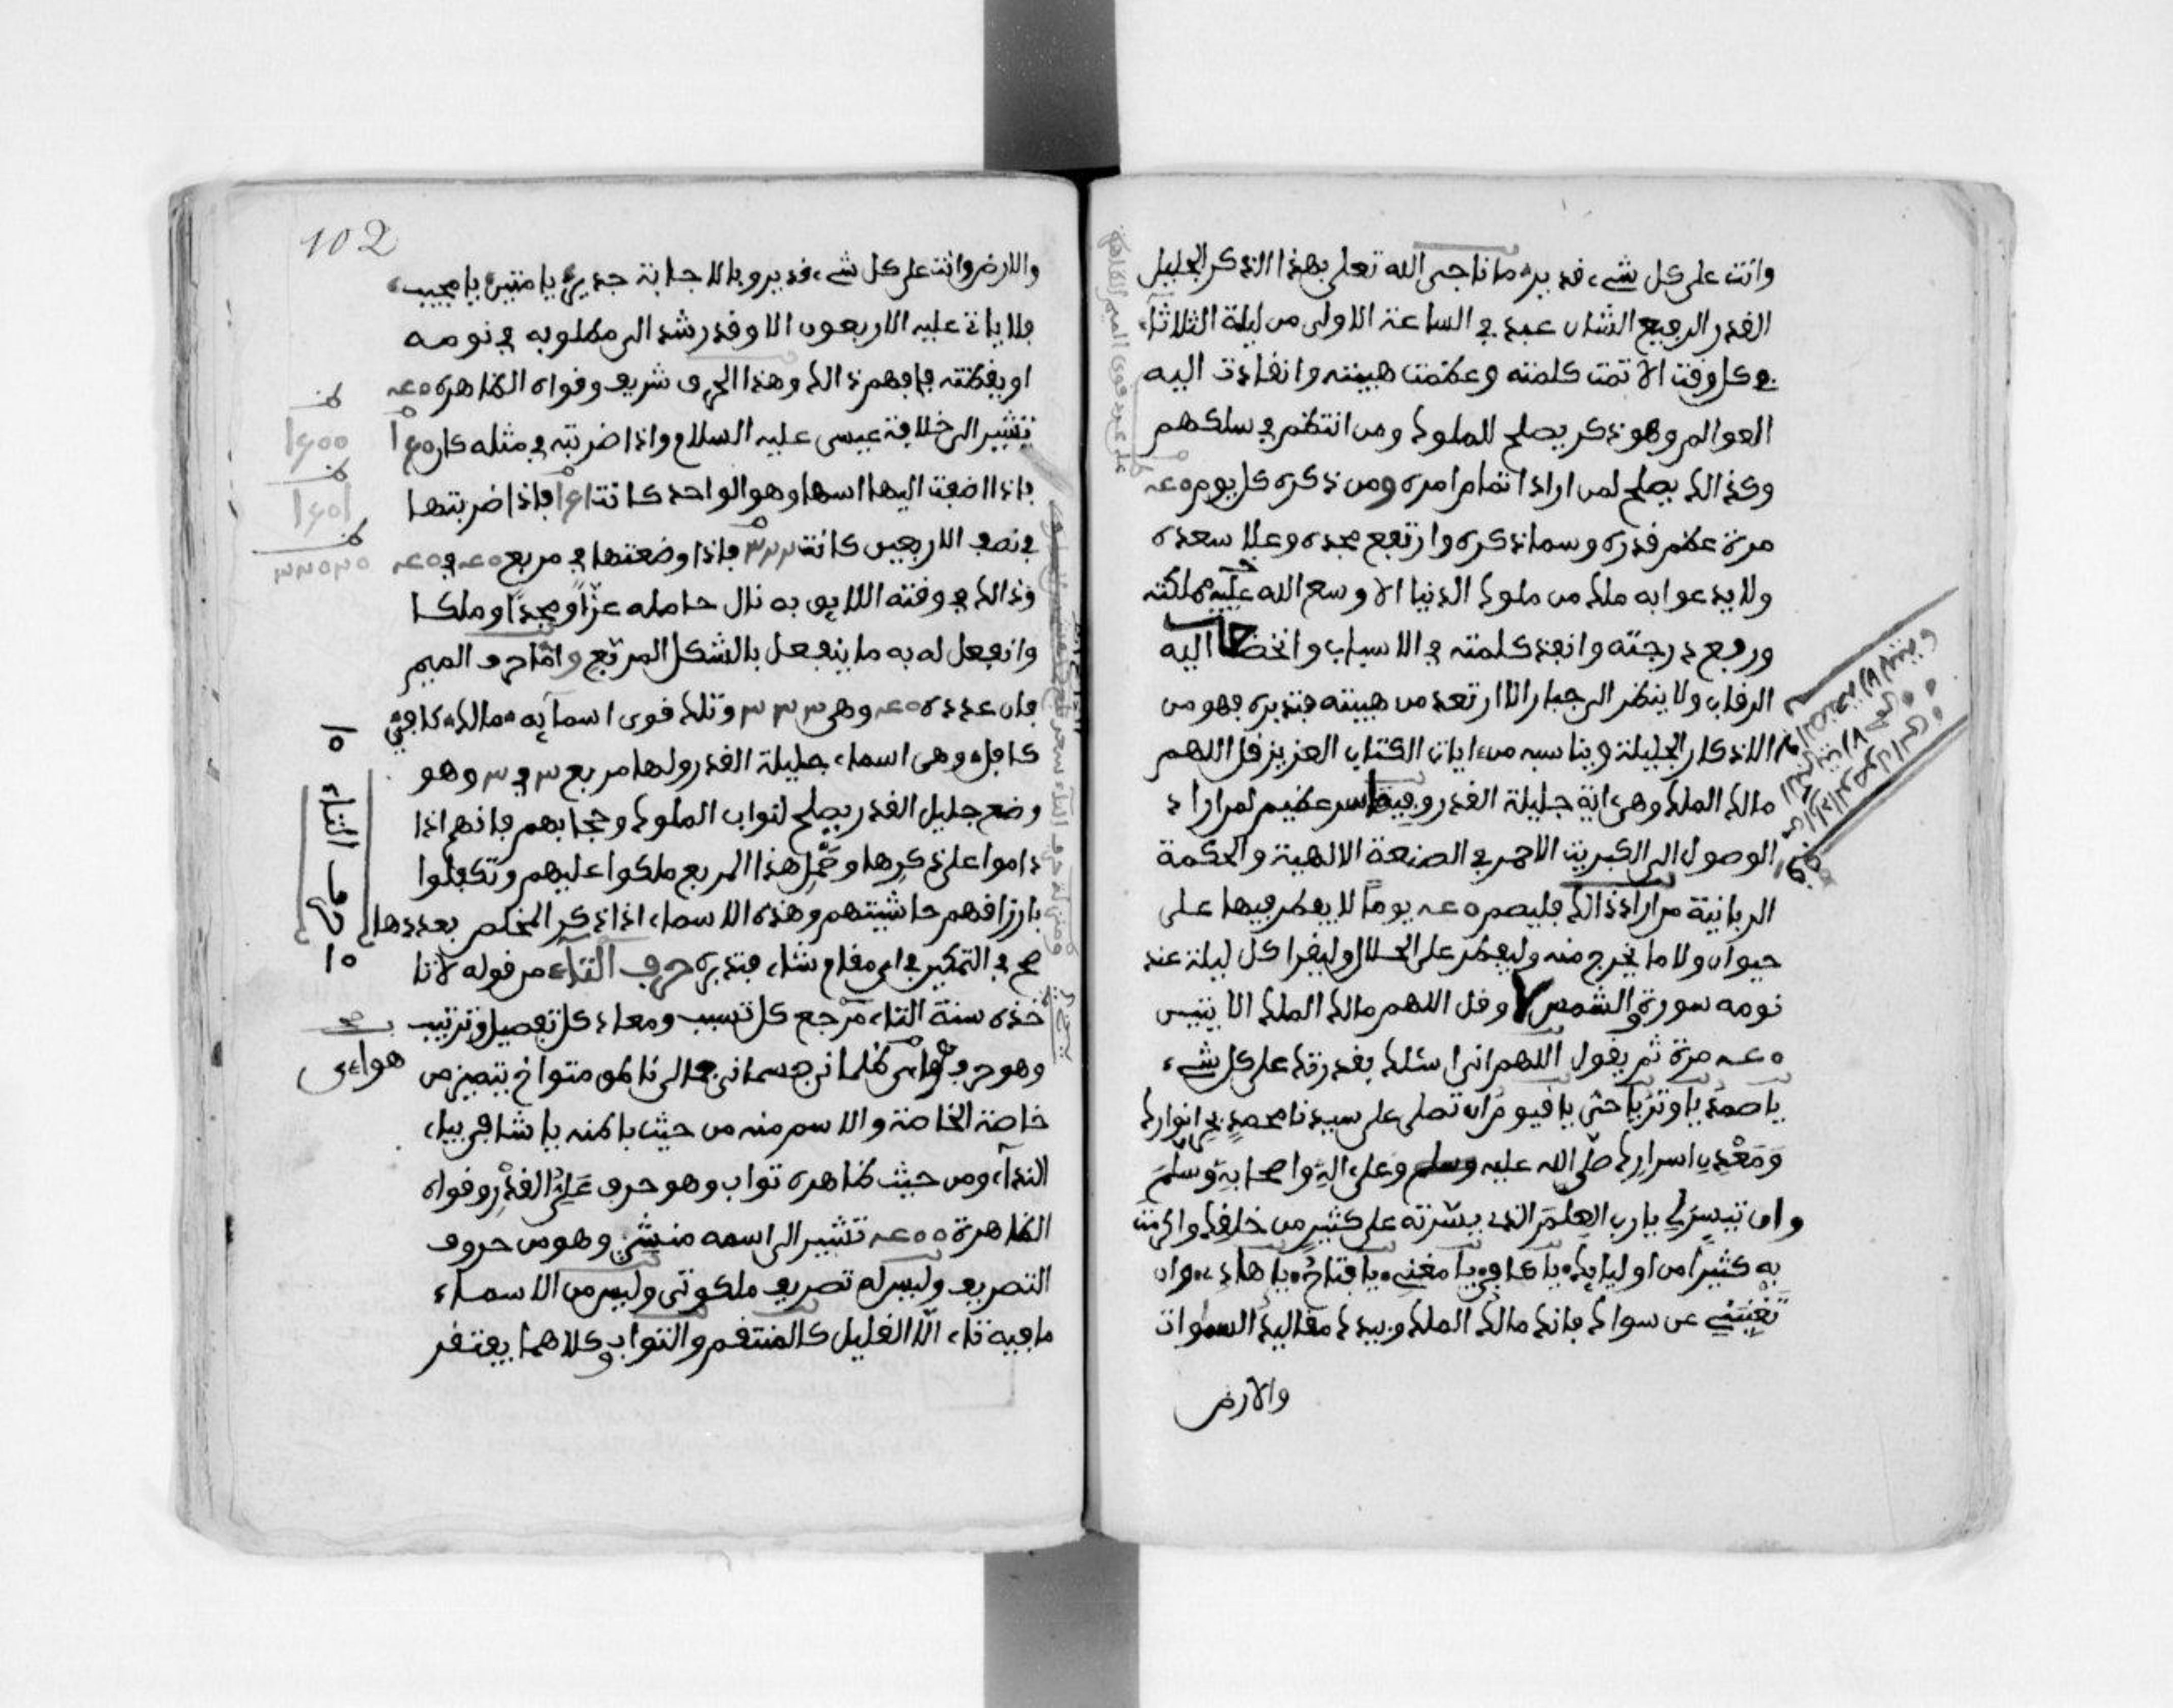 وانت على كل شيء قدير ما ناجى الله تعلى بهذا الذكر الجليل
القدر الرفيع الشان عبد في الساعة الاولى من ليلة الثلاثاء
في كل وقت الا تمت كلمته وعظمت هيبته وانقادت اليه
العوالم وهو ذكر يصلح للملوك ومن انتظم في سلكهم
وكذالك يصلح لمن اراد اتمام امره ومن ذكره كل يوم
مرة عظم قدره وسما ذكره وارتفع مجده وعلا سعده
ولا يدعوا به ملك من ملوك الدنيا الا وسع الله عليه مملكته
ورفع درجته وانفذ كلمته في الاسباب واخضعت اليه
الرقاب ولا ينظر الى جبار الا ارتعد من هيبته فتدبره فهو من
الاذكار الجليلة ويناسبه من ايات الكتاب العزيز قل اللهم
مالك الملك وهي اية جليلة القدر وفيها سر عظيم لمن اراد
الوصول الى الكبريت الاحمر في الصنعة الالهية والحكمة
الربانية من اراد ذالك فليصم يوما لا يفطر فيها على
حيوان ولا ما يخرج منه وليفطر على الحلال وليقرا كل ليلة عند
نومه سورة والشمس ٧ وقل اللهم مالك الملك الايتين
مرة ثم يقول اللهم اني اسئلك بقدرتك على كل شيء
يا صمد يا وتر يا حي يا قيوم ان تصلي على سيدنا محمد بحر انوارك
ومعدن اسرارك صلى الله عليه وسلم وعلى اله واصحابه وسلم
وان تيسر لي يا رب العلم الذي يسرته على كثير من خلقك واكرمت
به كثيرا من اوليايك يا كافي يا مغني يا فتاح يا هادي وان
تغنيني عن سواك فانك مالك الملك وبيدك مقاليد السموات
والارض
102
والارض وانت على كل شيء قدير وبالاجابة جدير يا متين يا مجيب
فلا ياتي عليه الاربعون الا وقد رشد الى مطلوبه في نومه
او يقظته فافهم ذالك وهذا الحرف شريف وقواه الظاهرة
تشير الى خلافة عيسى عليه السلام واذا ضربته في مثله كان
فاذا اضفت اليها اسها وهو الواحد كانت فاذا ضربتها
في نصف الاربعين كانت فاذا وضعتها في مربع
وذالك في وقته اللايق به نال حامله عزا ومجدا وملكا
وانفعل له به ما ينفعل بالشكل المربع واما حرف الميم
فان عدده وهي وتلك قوى اسمايه مالك كافي
كافل وهي اسماء جليلة القدر ولها مربع وهو
وضع جليل القدر يصلح لنواب الملوك وحجابهم فانهم اذا
داموا على ذكرها وحمل هذا المربع ملكوا عليهم وتكفلوا
بارزاقهم حاشيتهم وهذه الاسماء اذا ذكر المخلص بعددها
صح في التمكين في اي مقام شاء فتدبره حرف التاء من قوله لا تا
خذه سنة التاء مرجع كل تسبب ومعاد كل تفصيل وترتيب
وهو حرف هوائي ظلماني جسماني
خاصة الخاصة والاسم منه من حيث باطنه يا شافي بياء
النداء ومن حيث ظاهره تواب وهو حرف علي القدر وقواه
الظاهرة تشير الى اسمه منشئ وهو من حروف
التصريف وليس له تصريف ملكوتي وليس من الاسماء
ما فيه تاء الا القليل كالمنتقم والتواب وكلاهما يفتقر
حرف التاء
هواءي